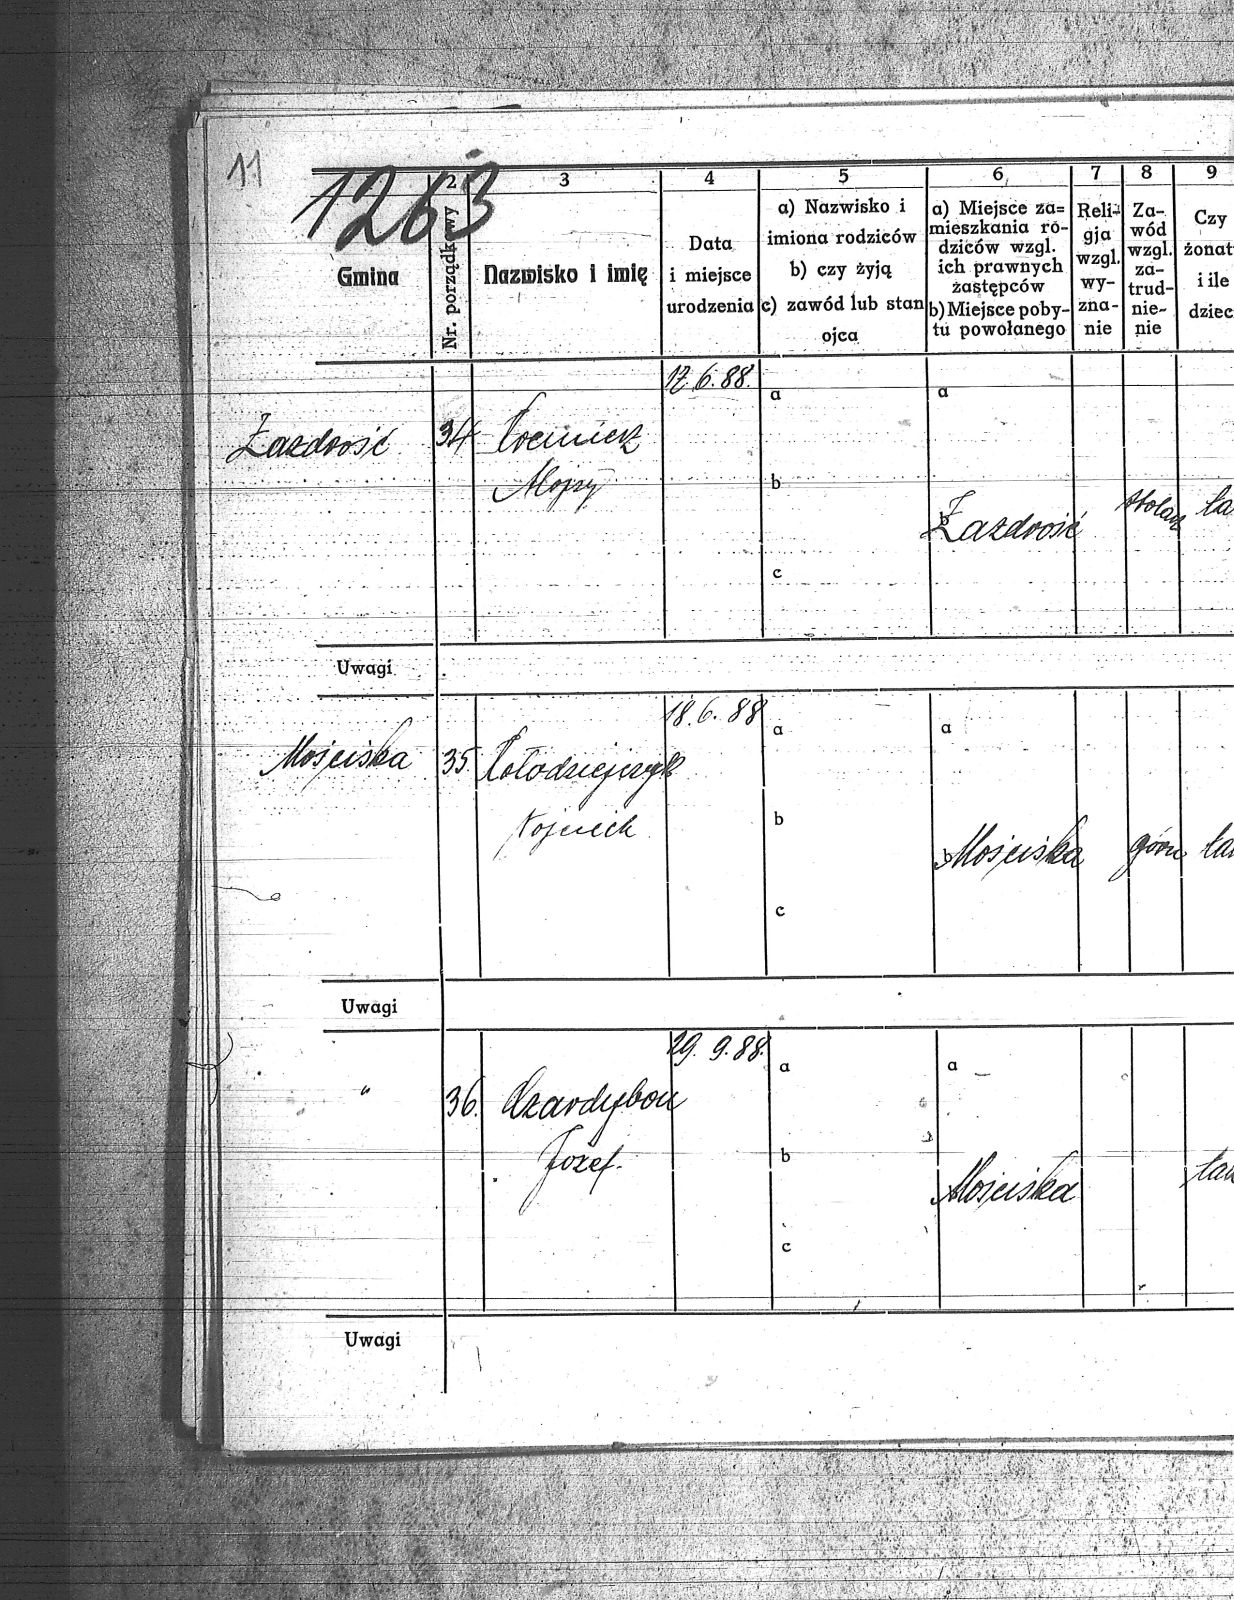 11
1263
2 3 4 5 6 7 8 9
Gmina
Nr. porządkowy
Nazwisko i imię
Data
i miejsce
urodzenia
a) Nazwisko i
imiona rodziców
b) czy żyją
c) zawód lub stan
ojca
a) Miejsce za=
mieszkania ro-
dziców wzgl.
ich prawnych
zastępców
b) Miejsce poby-
tu powołanego
Reli-
gja
wzgl.
wy-
zna-
nie
Za-
wód
wzgl.
za-
trud-
nie-
nie
Czy
żonat
i ile
dziec
17.6.88.
a a
Zazdrość 34
Alojzy
b
b Zazdrość stolarz ta
c
Uwagi
18.6.88
a a
Mościska 35. Kołodziejczyk
Wojciech
b
b Mościska górn tar
c
Uwagi
29.9.88.
a a
" 36. Czardybon
Józef.
b
Mościska
c
Uwagi